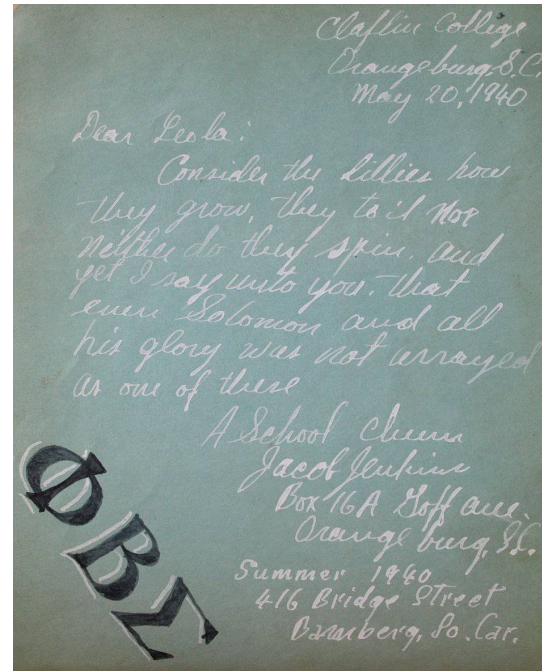 Claflin College
Orangeburg, S.C.
May 20, 1940
Dear Leola:
Consider the lillies how
they grow, they toil not
neither do they spin, and
yet I say unto you, that
even Solomon and all
his glory was not arrayed
as one of these
A School Chum
Jacob Jenkins
Box 16A Goff ave.
Orangeburg, S.C.
Summer 1940
416 Bridge Street
Bamberg, So. Car.
ΦΒΣ